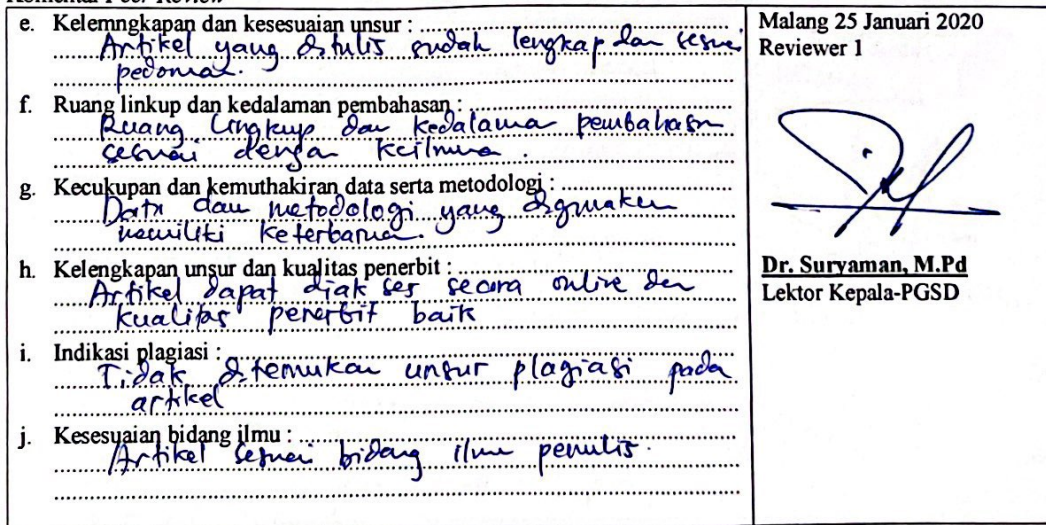 Komentar Peer Review
e. Kelemngkapan dan kesesuaian unsur :
Artikel yang ditulis sudah lengkap dan sesuai
pedoman.
f. Ruang linkup dan kedalaman pembahasan :
Ruang lingkup dan kedalaman pembahasan
sesuai dengan keilmuan.
g. Kecukupan dan kemuthakiran data serta metodologi :
Data dan metodologi yang digunakan
memiliki keterbaruan.
h. Kelengkapan unsur dan kualitas penerbit :
Artikel dapat diakses secara online dan
kualitas penerbit baik
i. Indikasi plagiasi :
Tidak ditemukan unsur plagiasi pada
artikel
j. Kesesuaian bidang ilmu :
Artikel sesuai bidang ilmu penulis.
Malang 25 Januari 2020
Reviewer 1
Dr. Suryaman, M.Pd
Lektor Kepala-PGSD